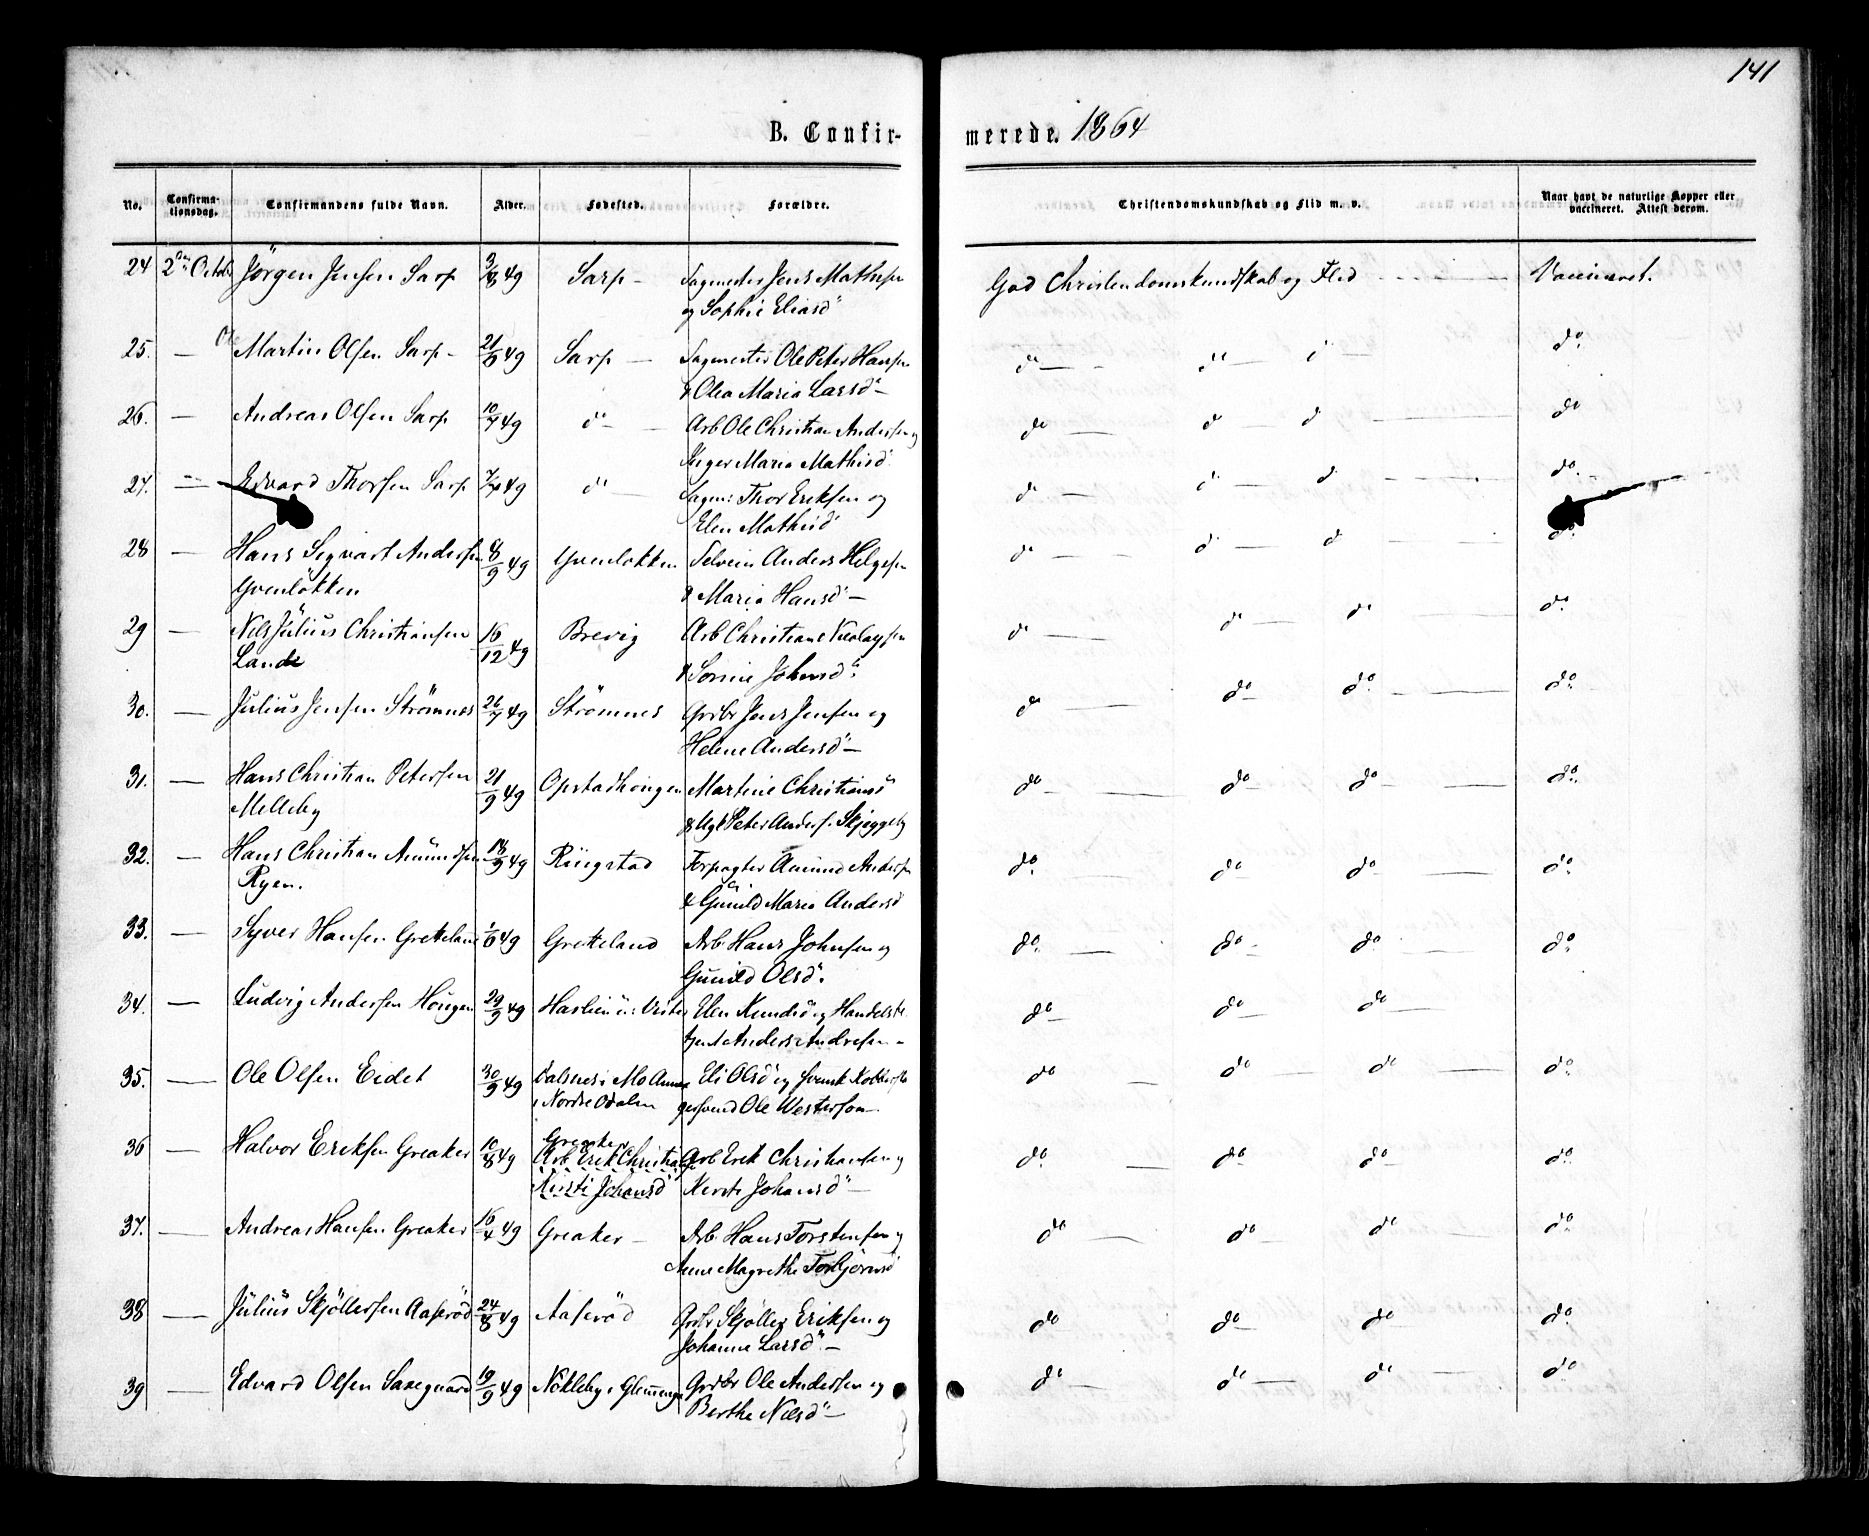 141
B. Confir-
merede. 1864
No.
Confirma-
tionsdag.
Confirmandens fulde Navn.
Alder.
Fødested.
Forældre.
Christendomskundskab og Flid m. v.
Naar havt de naturlige Kopper eller
vaccineret. Attest derom.
24 2den Octob Jörgen Jensen Sarp 3/8 49 Sarp – Sagmester Jens Mathisen God Christendomskundskab og Flid Vaccineret.
og Sophie Eliasd
25. — Martin Olsen Sarp – 21/9 49 Sarp — Sagmester Ole Peter Hansen do — do — d — do
& Olea Maria Larsd –
26. — Andreas Olsen Sarp 10/7 49 do — Arb Ole Christian Andersen og do — do d — do
Inger Maria Mathisd
27. — Edvard Thorsen Sarp 49 do — Sagm: Thor Eriksen og do — d — d do.
Elen Mathisd
28 — Hans Sigvart Andersen 8/9 49 Gvenløkken Selveier Anders Helgesen do — d — d — do.
Gvenlökken & Maria Hansd –
29 — Nils Julius Christiansen 16/12 49 Brevig Arb Christian Nicolaysen do — do — do — do.
Lande & Sorine Johnsd
30. — Julius Jensen Strömnes 26/7 49 Strömnes Grdbr Jens Jensen og do — do – do. — do.
Helene Andersd –
31. — Hans Christian Petersen 21/9 49 Opstadhougen Martine Christians do – — do – do – — do.
Melleby & Ugk Peter Anders. Skjeggeby
32. — Hans Christian Amundsen 18/9 49 Ringstad Forpagter Amund Andersen do. do – do — do.
Ryen. & Gunild Maria Andersd
33. — Syver Hansen Gretteland 49 Gretteland Arb. Hans Johnsen og do. do – do do
Gunild Olsd.
34. — Ludvig Andersen Hougen 29/9 49 Elen Knudsd og Handelsbe do – do – do —
tjent Anders Andresen –
35. — Ole Olsen Eidet 30/9 49 Valsnes i Mo Annex Eli Olsd og svensk do — do — do — do.
i Nordre Odalen gersvend Ole Westerson
Greaker
36 — Halvor Eriksen Greaker 10/8 49 Arb Erik Christians Arb Erik Christiansen og do. — do – do – do.
Kirsti Johansd Kersti Johansd –
37. — Andreas Hansen Greaker 16/4 49 Greaker – Arb. Hans Torstensen og do — do – do — do
Anne Magrethe Torbjörnsd
38 — Julius Skjöllersen Aaseröd 24/8 49 Aaseröd Grdbr Skjöller Eriksen og do do – do – do
Johanne Larsd –
39 — Edvard Olsen Saxegaard 19/9 49 Nölleby i Glemminge Grdbr Ole Andersen og do — do — do — do
Berthe Nilsd –